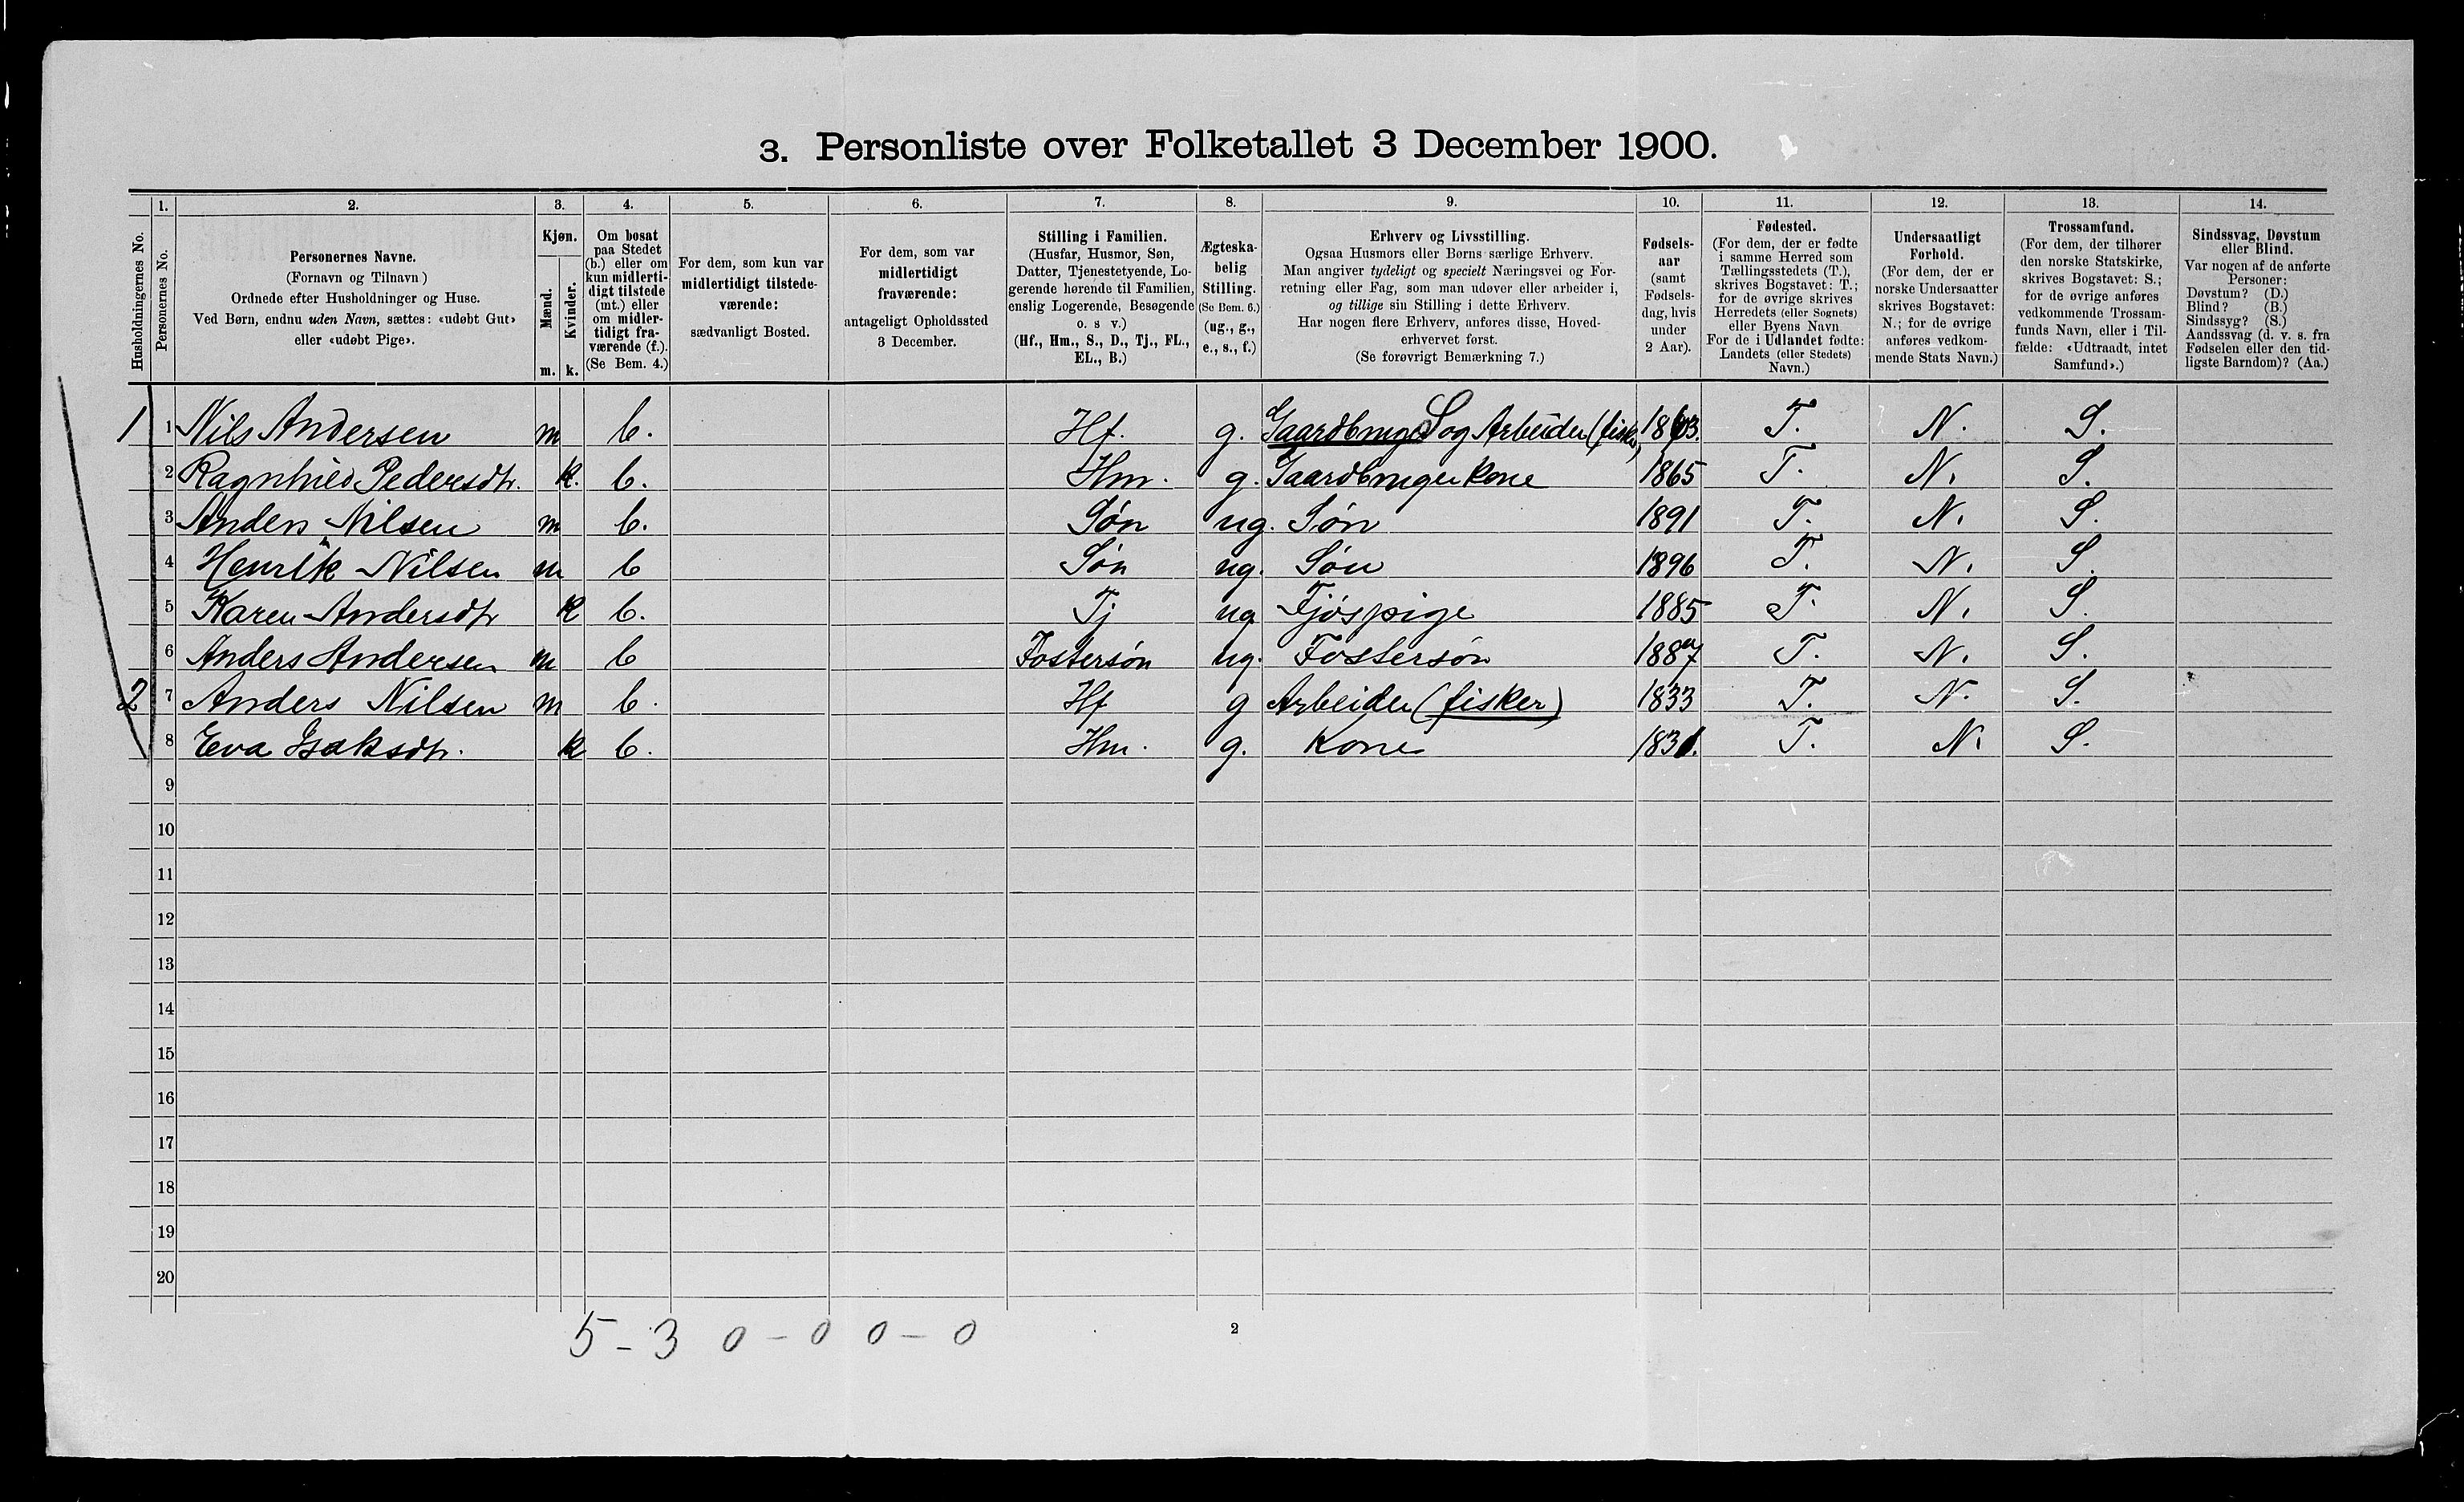 3. Personliste over Folketallet 3 December 1900.
Husholdningernes No.
1.
Personernes No.
2.
Personernes Navne.
(Fornavn og Tilnavn)
Ordnede efter Husholdninger og Huse.
Ved Børn, endnu uden Navn, sættes: «udøbt Gut»
eller «udøbt Pige».
3.
Kjøn.
Mænd.
Kvinder.
m. k.
4.
Om bosat
paa Stedet
(b.) eller om
kun midlerti-
digt tilstede
(mt.) eller
om midler-
tidigt fra-
værende (f.).
(Se Bem. 4.)
5.
For dem, som kun var
midlertidigt tilstede-
værende:
sædvanligt Bosted.
6.
For dem, som var
midlertidigt
fraværende:
antageligt Opholdssted
3 December.
7.
Stilling i Familien.
(Husfar, Husmor, Søn,
Datter, Tjenestetyende, Lo-
gerende hørende til Familien,
enslig Logerende, Besøgende
o. s v.)
(Hf., Hm., S., D., Tj., FL.,
EL., B.)
8.
Ægteska-
belig
Stilling.
(Se Bem. 6.)
(ug., g.,
e., s., f.)
9.
Erhverv og Livsstilling.
Ogsaa Husmors eller Børns særlige Erhverv.
Man angiver tydeligt og specielt Næringsvei og For-
retning eller Fag, som man udøver eller arbeider i,
og tillige sin Stilling i dette Erhverv.
Har nogen flere Erhverv, anføres disse, Hoved-
erhvervet først.
(Se forøvrigt Bemærkning 7.)
10.
Fødsels-
aar
(samt
Fødsels-
dag, hvis
under
2 Aar).
11.
Fødested.
(For dem, der er fødte
i samme Herred som
Tællingsstedets (T.),
skrives Bogstavet: T.;
for de øvrige skrives
Herredets (eller Sognets)
eller Byens Navn
For de i Udlandet fødte:
Landets (eller Stedets)
Navn.)
12.
Undersaatligt
Forhold.
(For dem, der er
norske Undersaatter
skrives Bogstavet:
N.; for de øvrige
anføres vedkom-
mende Stats Navn.)
13.
Trossamfund.
(For dem, der tilhører
den norske Statskirke,
skrives Bogstavet: S.;
for de øvrige anføres
vedkommende Trossam-
funds Navn, eller i Til-
fælde: «Udtraadt, intet
Samfund».)
14.
Sindssvag, Døvstum
eller Blind.
Var nogen af de anførte
Personer:
Døvstum? (D.)
Blind? (B.)
Sindssyg? (S.)
Aandssvag (d. v. s. fra
Fødselen eller den tid-
ligste Barndom)? (Aa.)
1 1 Nils Andersen m b. Hf. g. Gaardbruger S og Arbeider (fisker) 1863. T. N. S.
2 Ragnhild Pedersdtr. k. b. Hm. g. Gaardbruger kone 1865 T. N. S.
3 Anders Nilsen m b. Søn ug. Søn 1891 T. N. S.
4 Henrik Nilsen m b Søn ug. Søn 1896 T. N. S.
5 Karen Andersdtr k b. Tj ug Fjøspige 1885 T. N. S.
6 Anders Andersen m b Fostersøn ug. Fostersøn 1887 T. N. S.
2 7 Anders Nilsen m b. Hf g Arbeider (fisker) 1833 T. N. S.
8 Eva Isaksdtr. k b. Hm. g. Kone 1831. T. N. S.
9
10
11
12
13
14
15
16
17
18
19
20
5 - 3 0 - 0 0 - 0
2